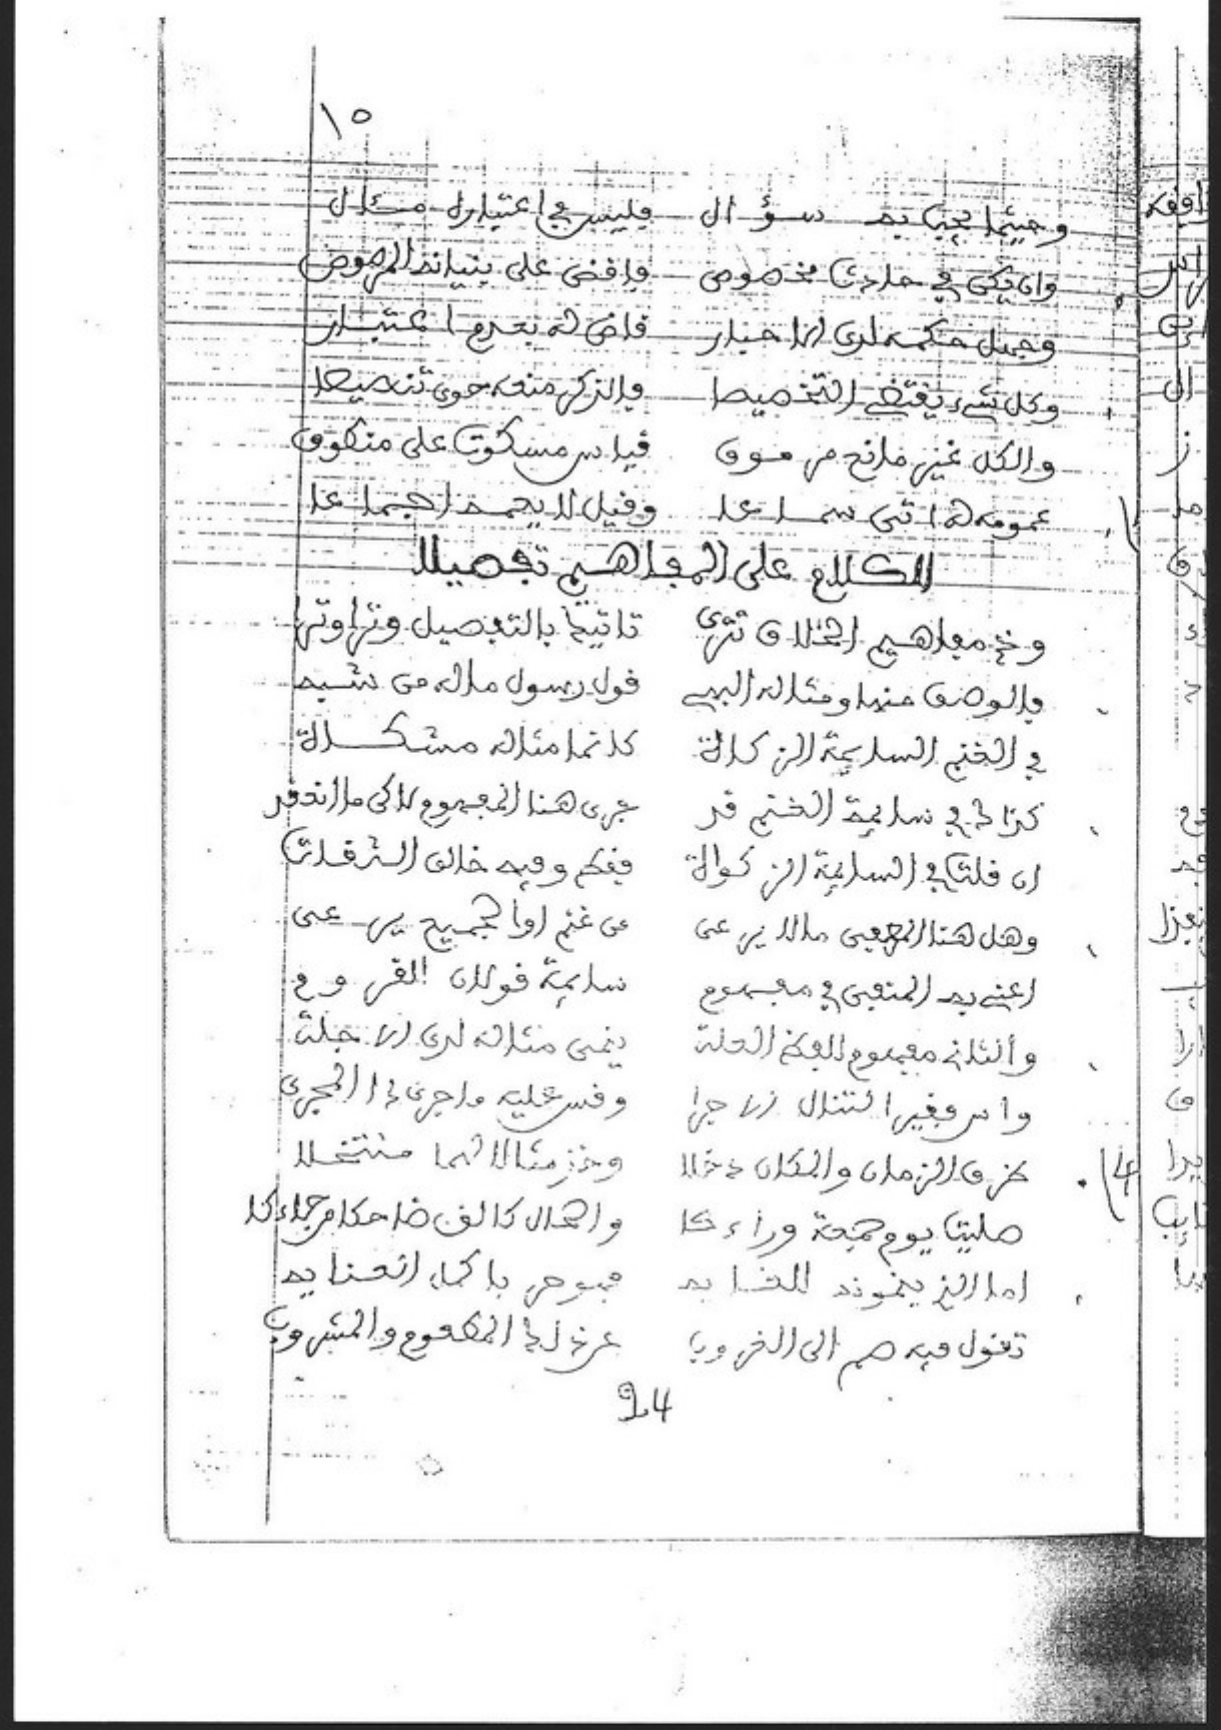 ١٥
وحيثما يجي به سؤال فليس في اعتباره مقال
وان يكن في حادث مخصوص فاقض على بنيانه المرصوص
وجهل حكمه لدى الاخبار قاض له بعدم اعتبار
وكل شيء يقتضي التخصيصا فالذكر منعه حوى تنصيصا
والكل غير مانع من سوق قياس مسكوت على منطوق
عمومه له اتى سماعا وقيل لا يعمه اجماعا
الكلام على المفاهيم تفصيلا
وخذ مفاهيم الخلاف تترى تاتيك بالتفصيل وترا وترا
فالوصف منها ومثاله البهي قول رسول ماله من شبه
في الغنم السايمة الزكاة كانما مثاله مشكاة
كذاك في سايمة الغنم قد جرى هنا المفهوم لكن ما انعقد
ان قلت في السايمة الزكواة فقط وفيه خالف الثقات
وهل هنا المنفي ما لا يرعى من غنم او الجميع يرعى
اعني به المنفي في مفهوم سايمة قولان للقروم
والثان مفهوم للفظ العلة ينمى مثاله لدى الاجلة
واس فقير التنال زاجرا وقس عليه ما جرى ذا المجرى
ظرف الزمان والمكان دخلا وخذ مثالا لهما منتخلا
صليت يوم جمعة وراء كا والحال كالق ضاحكا من جاء كا
اما الذي ينمونه للغايه فهو حر باكمل العنايه
تقول فيه صم الى الغروب عن ذلك المطعوم والمشروب
94